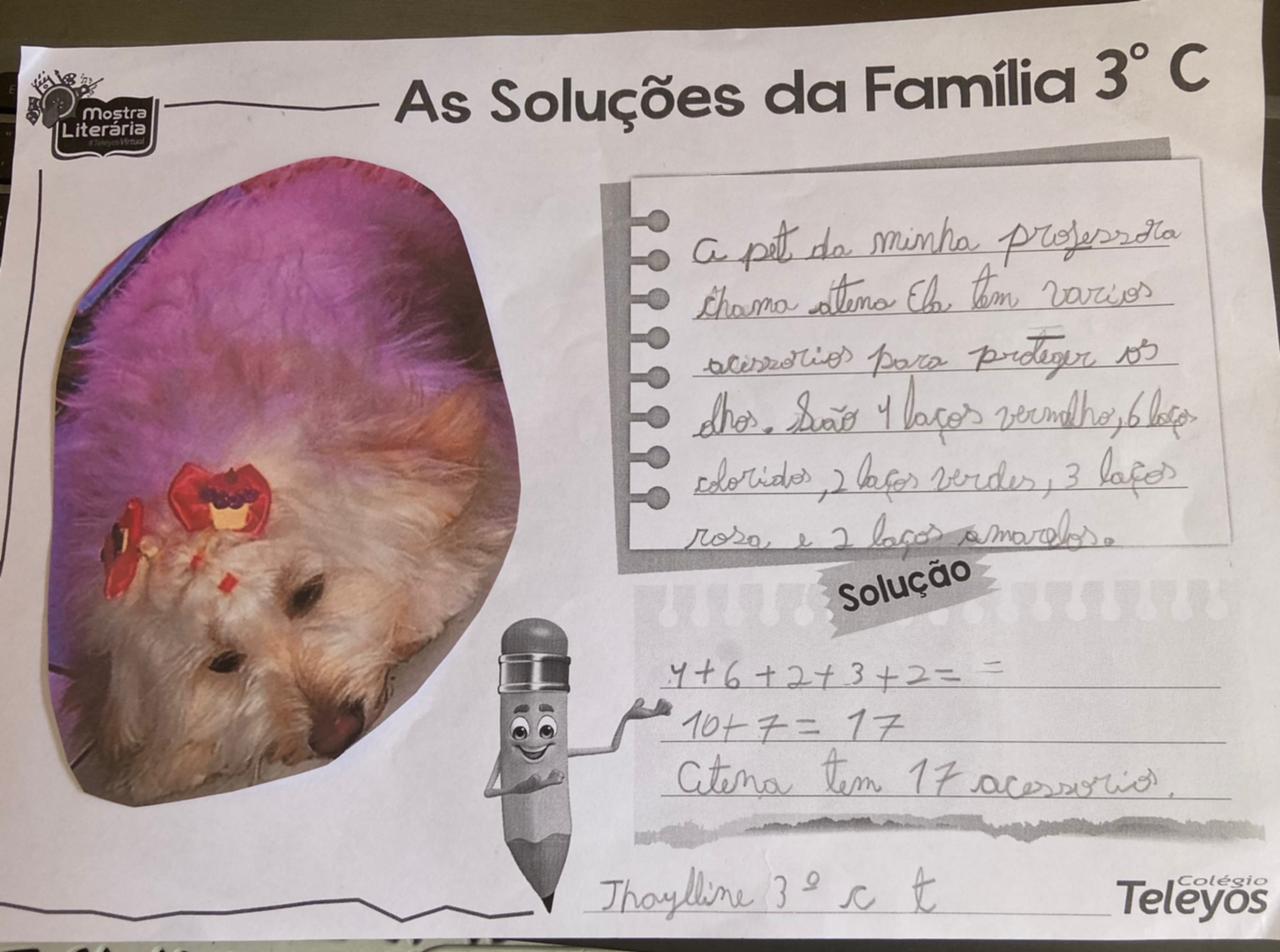 Mostra
Literária
#TeleyosVirtual
As Soluções da Família 3° C
A pet da minha professora
chama atena Ela tem varios
acessorios para proteger os
olhos. Suão 4 laços vermelho, 6 laços
coloridos, 2 laços verdes, 3 laços
rosa e 2 laços amarelos.
Solução
4+6+2+3+2= =
10+7= 17
Atena tem 17 acessorios.
Jhaylline 3º c t
Colégio
Teleyos